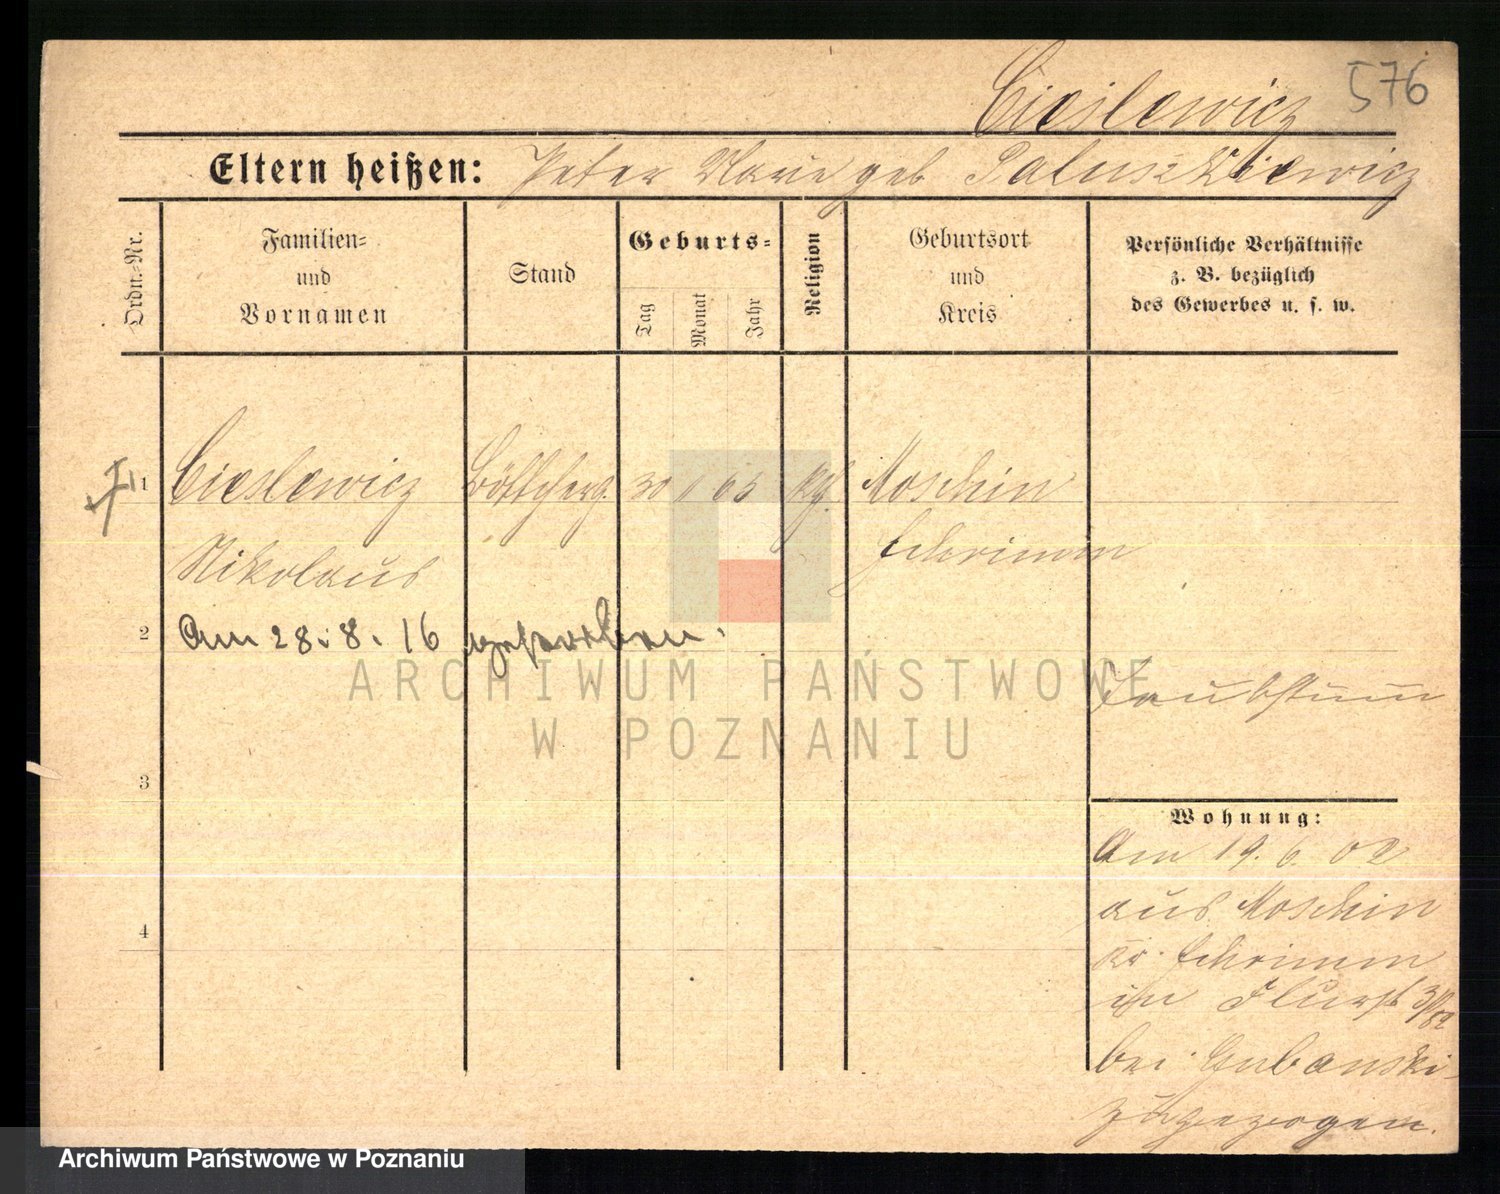 Cieslewicz 576
Eltern heißen: Peter Marie geb Paluszkiewicz
Ordn.-Nr.
Familien-
und
Vornamen
Stand
Geburts-
Tag
Monat
Jahr
Religion
Geburtsort
und
Kreis
Persönliche Verhältnisse
z. B. bezüglich
des Gewerbes u. s. w.
1 Cieslewicz Böttcherg. 30 65 Moschin
Nikolaus Schrimm
2 Am 28. 8. 16 gestorben.
Taubstum̄
3
Wohnung:
Am 19. 6. 02
aus Moschin
4
Kr. Schrimm
in Flurst
bei Gubanski
zugezogen.
ARCHIWUM PAŃSTWOWE
W POZNANIU
Archiwum Państwowe w Poznaniu